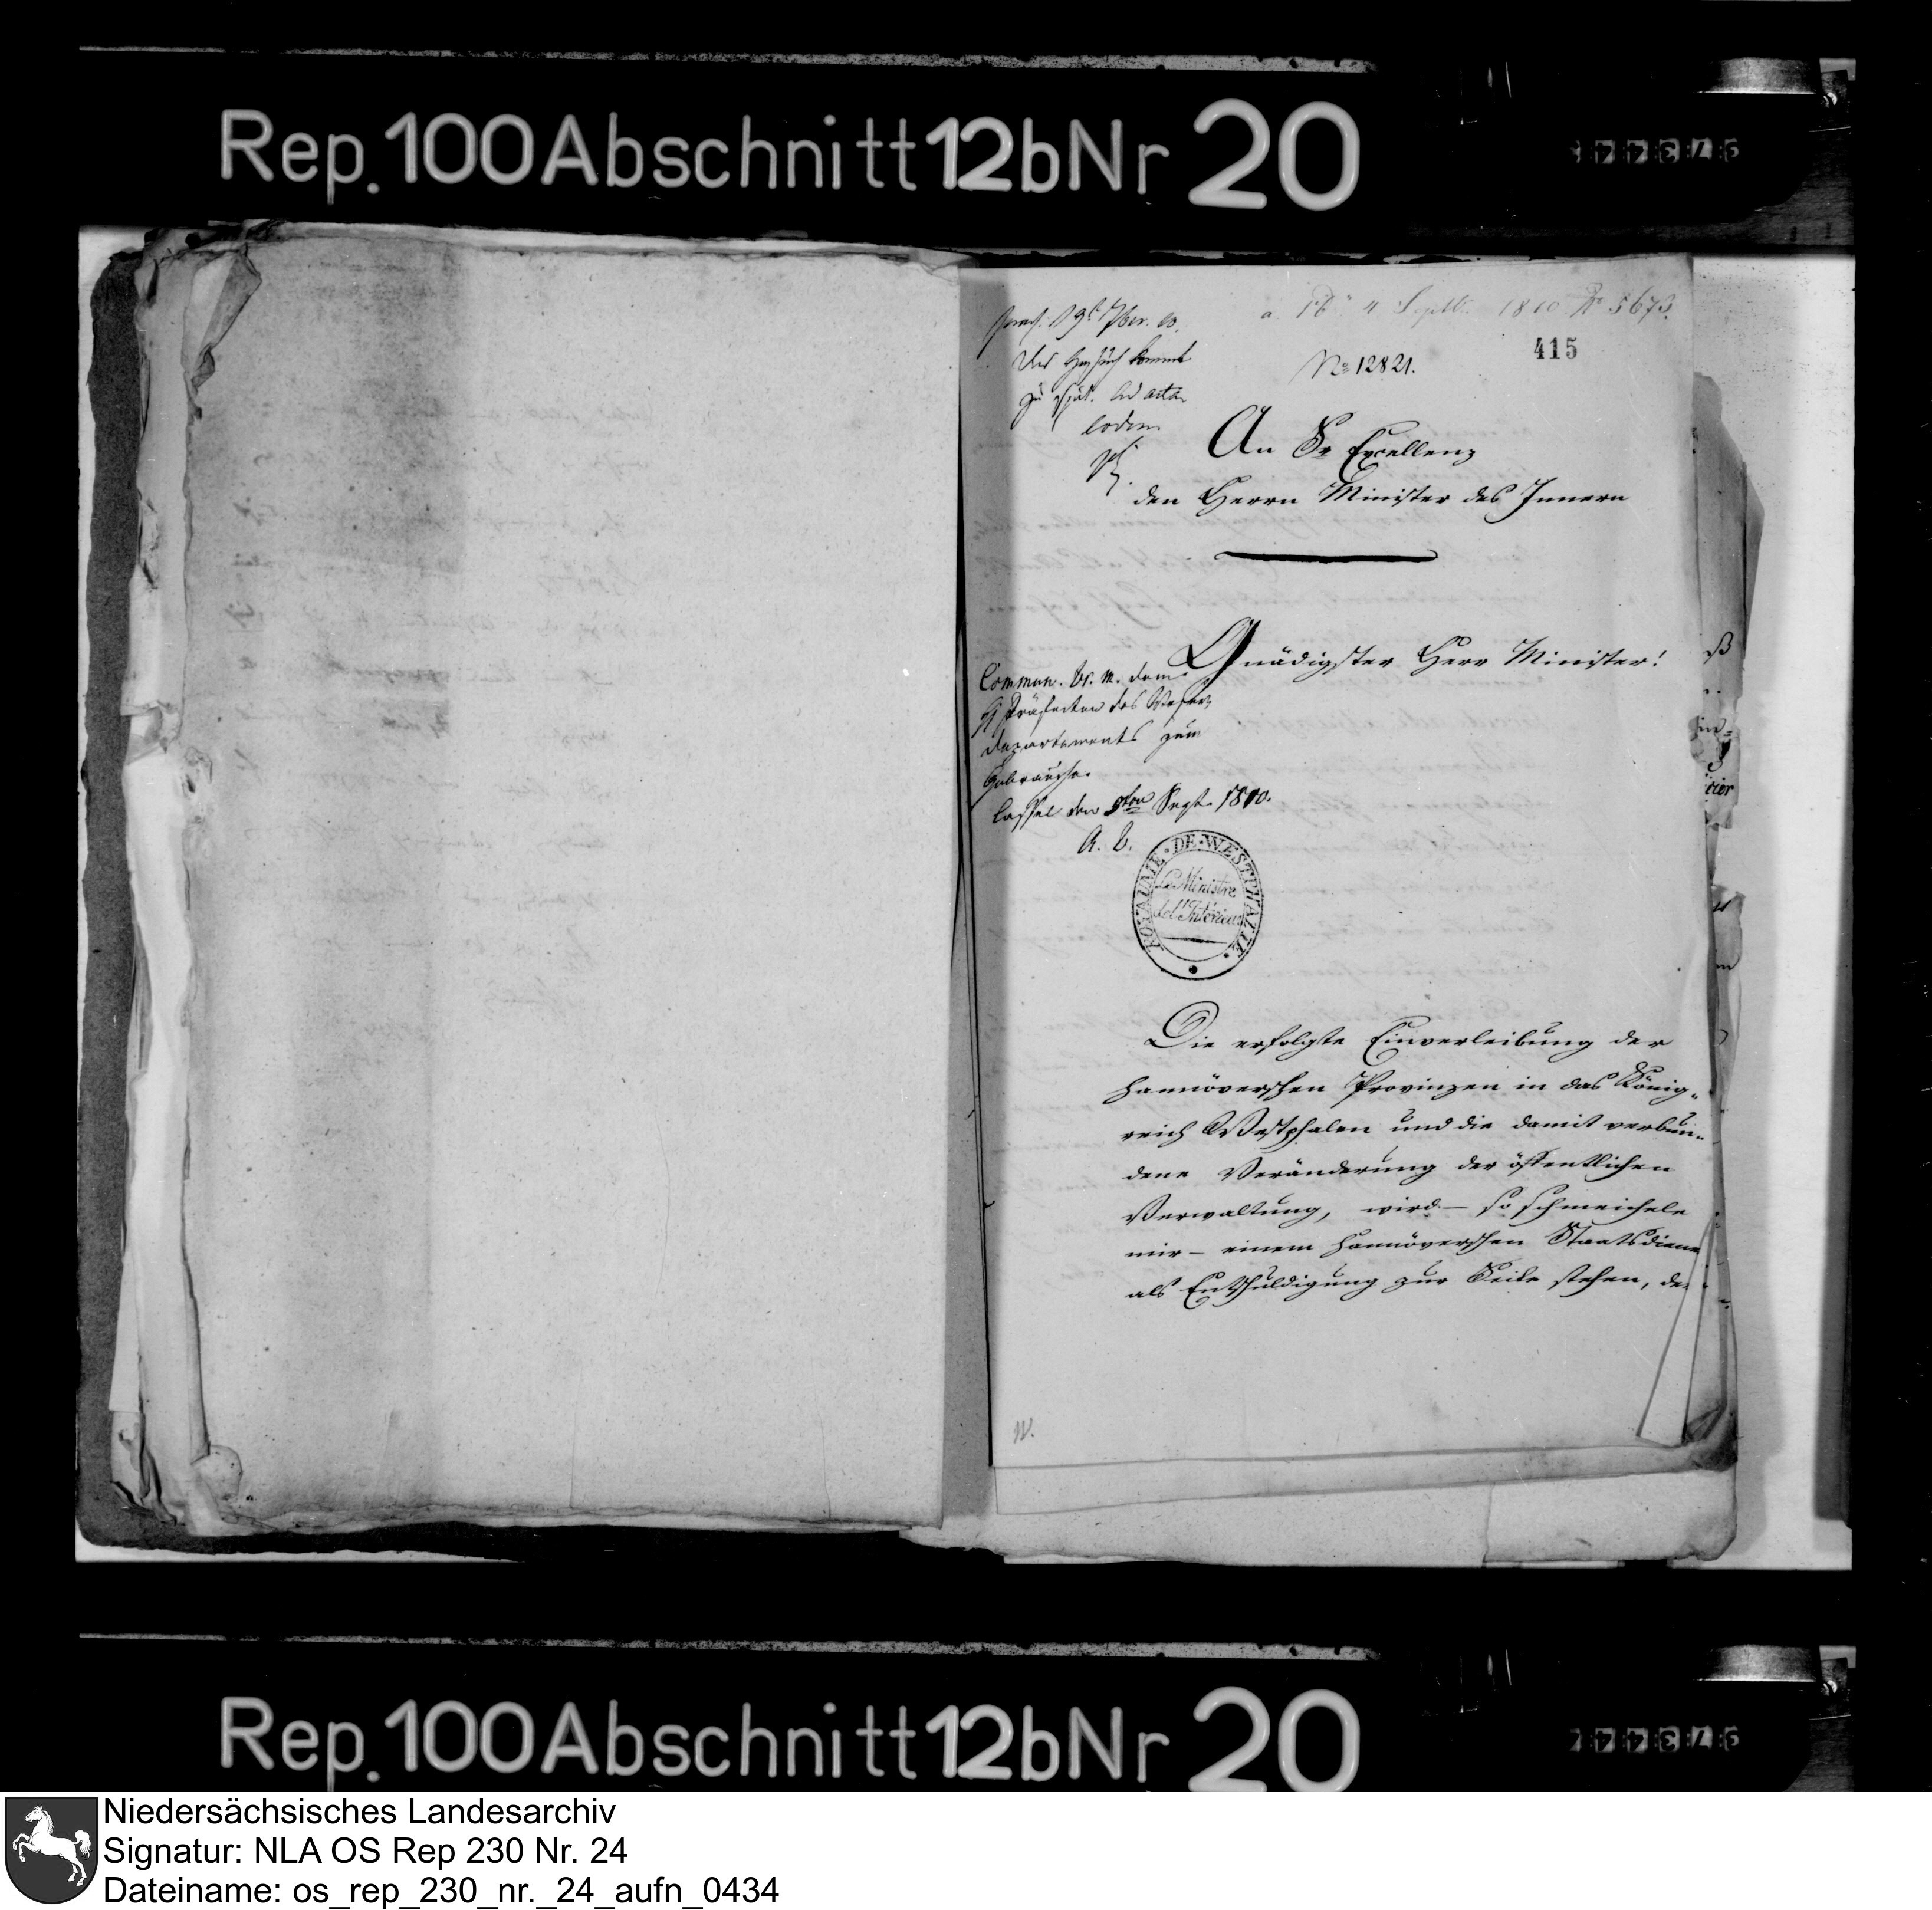 Rep. 100 Abschnitt 12b Nr 20
a. 4 Septb. 1810 No 5673.
415
No 12821.
praes. 19t 7ber. 10.
Das Gesuch kommt
zu spät. Ad acta
eodem
An Sr Excellenz
den Herrn Minister des Innern
Gnädigster Herr Minister!
Commun. br. m. dem
H Präfecten des Weser
Departements zum
Gebrauche.
Cassel den 9ten Sept. 1810.
ROYAUME DE WESTPHALIE
Le Ministre
del'Intérieur
Die erfolgte Einverleibung der
hannöverschen Provinzen in das König„
reich Westphalen und die damit verbun„
dene Veränderung der öffentlichen
Verwaltung, wird – so schmeichele
mir – einem hannöverschen Staatsdiener
als Entschuldigung zur Seite stehen, der
Rep. 100 Abschnitt 12b Nr 20
Niedersächsisches Landesarchiv
Signatur: NLA OS Rep 230 Nr. 24
Dateiname: os_rep_230_nr._24_aufn_0434